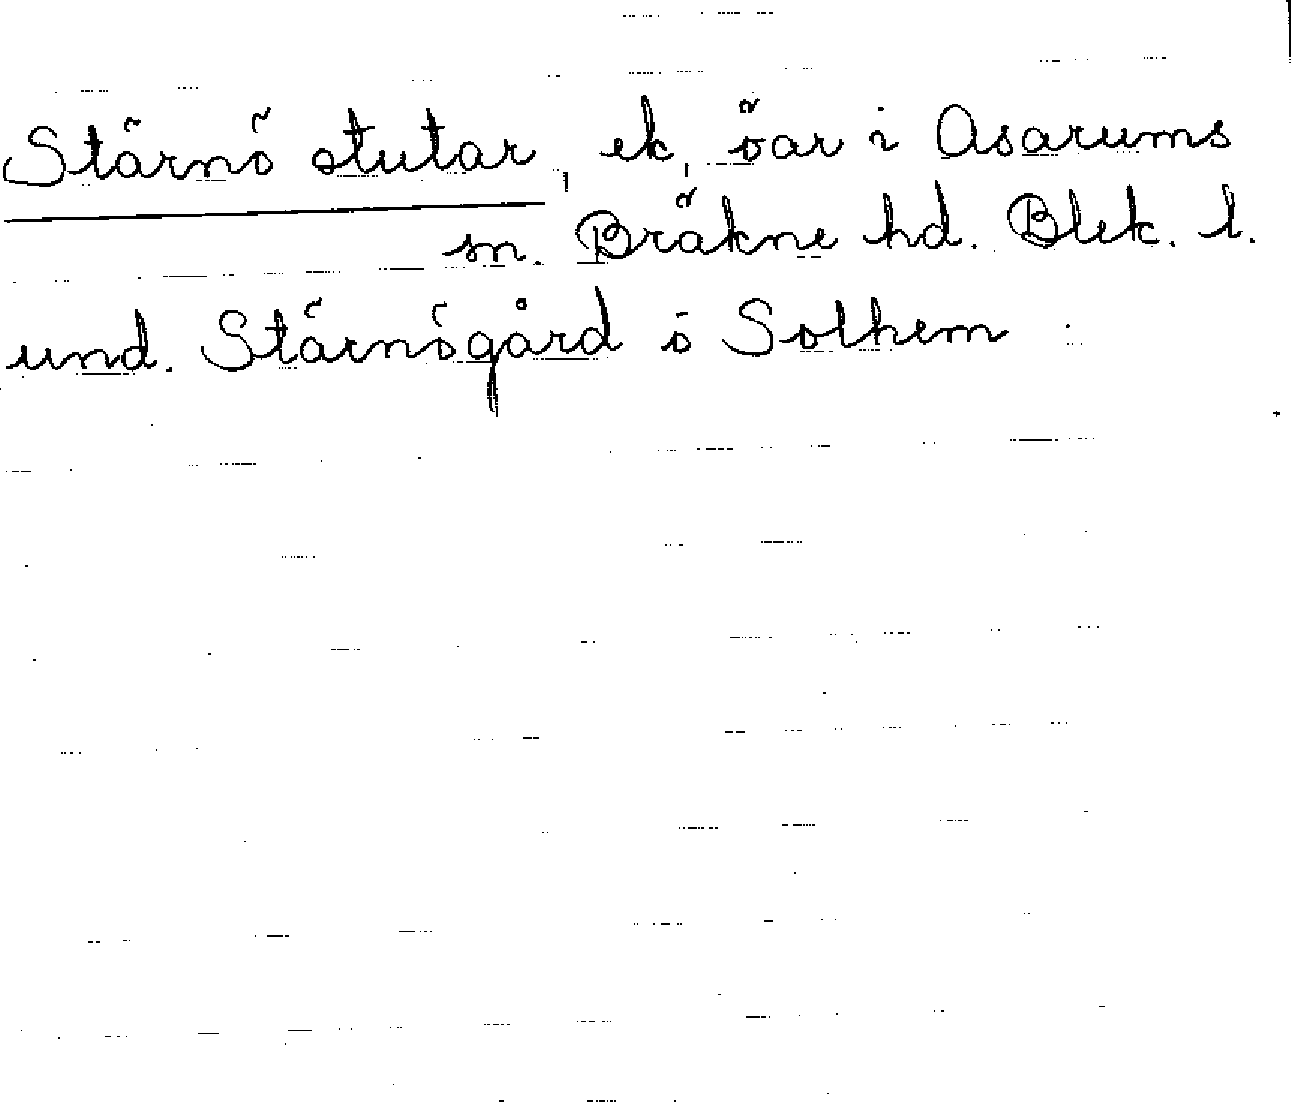 Stärnö stutar, ek, öar i Asarums
sn. Bräkne hd. Blek. l.
und. Stärnögård o Solhem